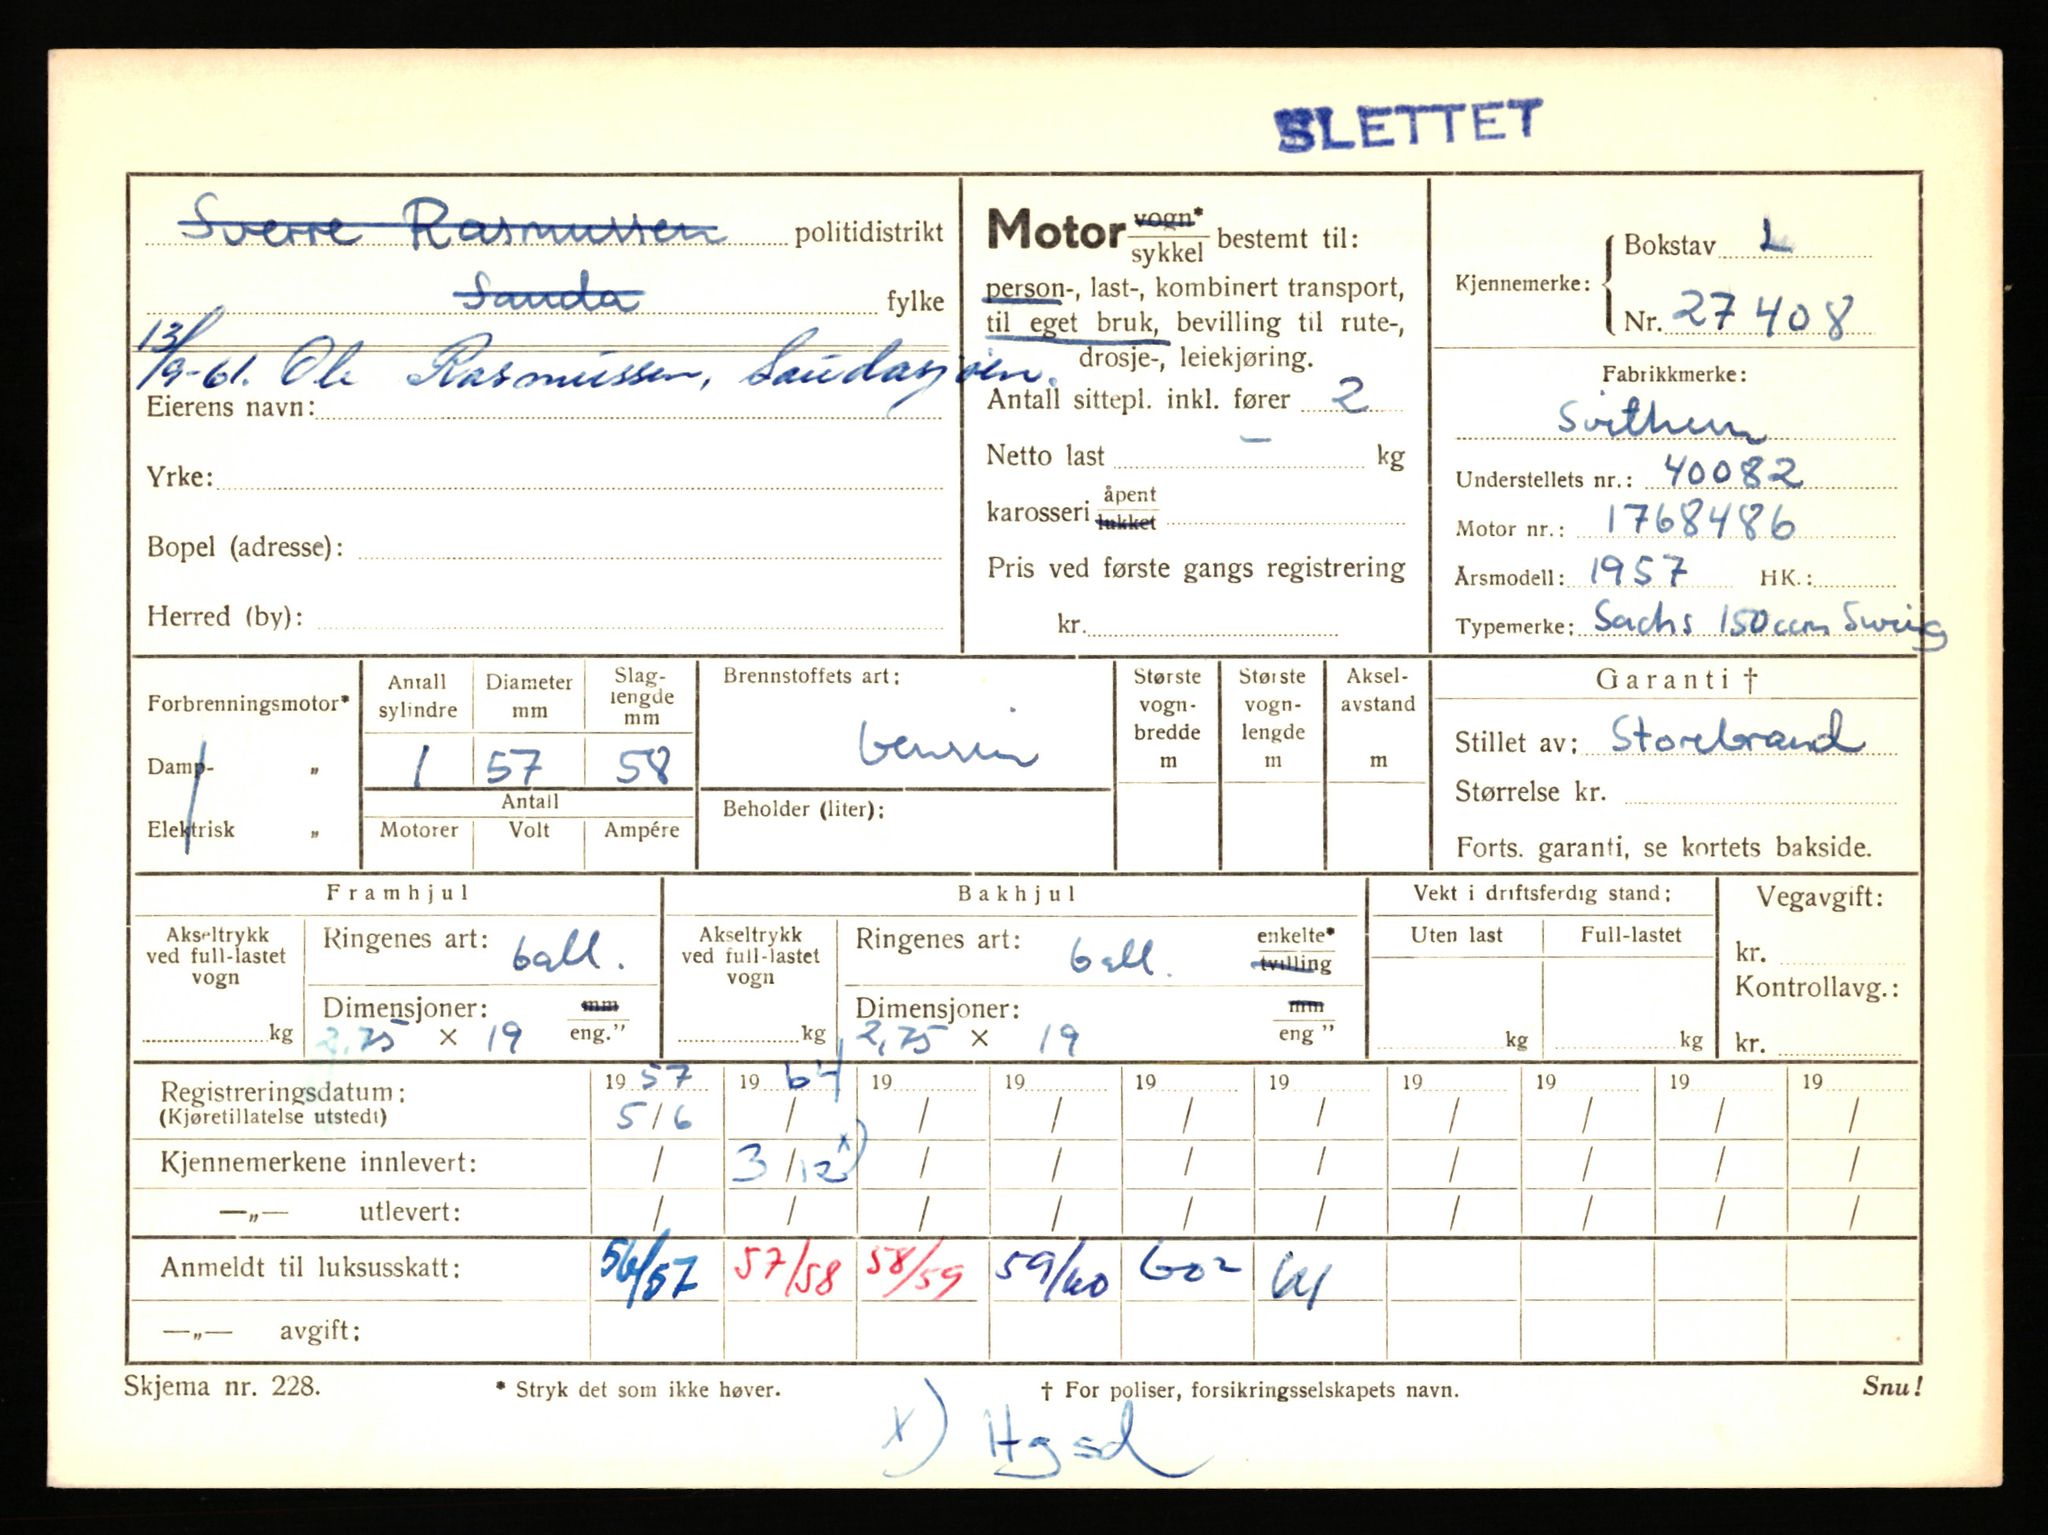 SLETTET
Sverre Rasmussen politidistrikt
Sauda fylke
13/9-61. Ole Rasmussen, Saudasjøen.
Eierens navn:
Yrke:
Bopel (adresse):
Herred (by):
Motor vogn*/sykkel bestemt til:
person-, last-, kombinert transport,
til eget bruk, bevilling til rute-,
drosje-, leiekjøring.
Antall sittepl. inkl. fører 2
Netto last – kg
karosseri åpent/lukket
Pris ved første gangs registrering
kr.
Kjennemerke: Bokstav L
Nr. 27408
Fabrikkmerke:
Svithun
Understellets nr.: 40082
Motor nr.: 1768486
Årsmodell: 1957 HK.:
Typemerke: Sachs 150ccm Swing
Forbrenningsmotor*
Damp- „
Elektrisk „
Antall sylindre 1
Diameter mm 57
Slaglengde mm 58
Antall
Motorer Volt Ampére
Brennstoffets art:
bensin
Beholder (liter):
Største vogn-bredde m
Største vogn-lengde m
Aksel-avstand m
Garanti †
Stillet av: Storebrand
Størrelse kr.
Forts. garanti, se kortets bakside.
Framhjul
Akseltrykk ved full-lastet vogn
kg
Ringenes art: ball.
Dimensjoner: mm/eng."
2,75 × 19
Bakhjul
Akseltrykk ved full-lastet vogn
kg
Ringenes art: ball. enkelte*/tvilling
Dimensjoner: mm/eng"
2,75 × 19
Vekt i driftsferdig stand:
Uten last Full-lastet
kg kg
Vegavgift:
kr.
Kontrollavg.:
kr.
Registreringsdatum: 1957 1964 19 19 19 19 19 19 19 19
(Kjøretillatelse utstedt) 5/6 / / / / / / / / /
Kjennemerkene innlevert: / 3/12 x) / / / / / / / /
—„— utlevert: / / / / / / / / / /
Anmeldt til luksusskatt: 56/57 57/58 58/59 59/60 602 61
—„— avgift:
Skjema nr. 228. * Stryk det som ikke høver. † For poliser, forsikringsselskapets navn. Snu!
x) Hgsd